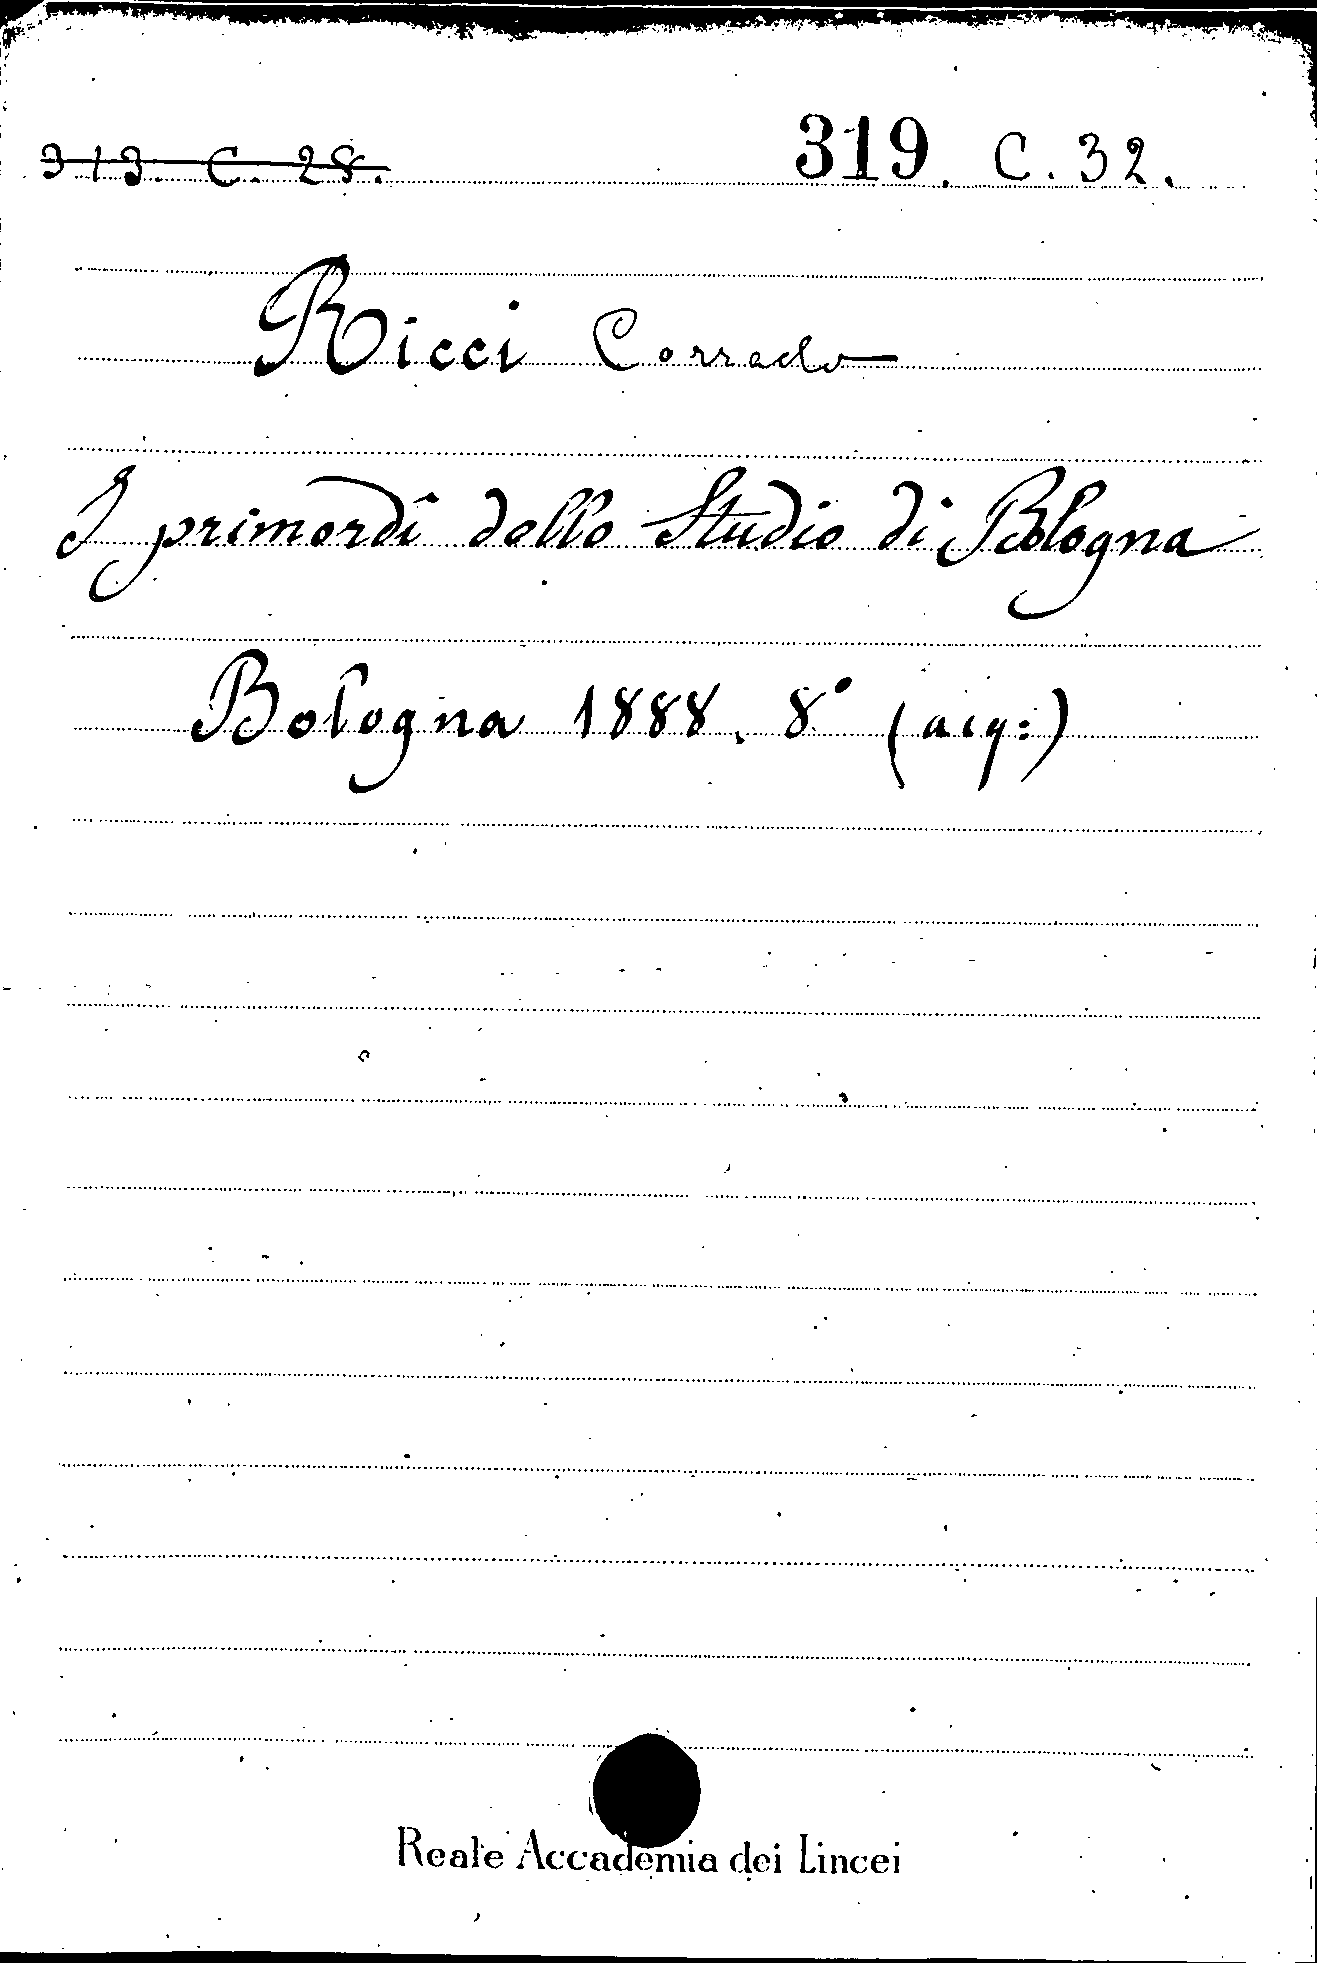 313. C. 28. 319. C. 32.
Ricci Corrado
I primordi dello Studio di Bologna
Bologna 1888. 8° (acq:)
Reale Accademia dei Lincei